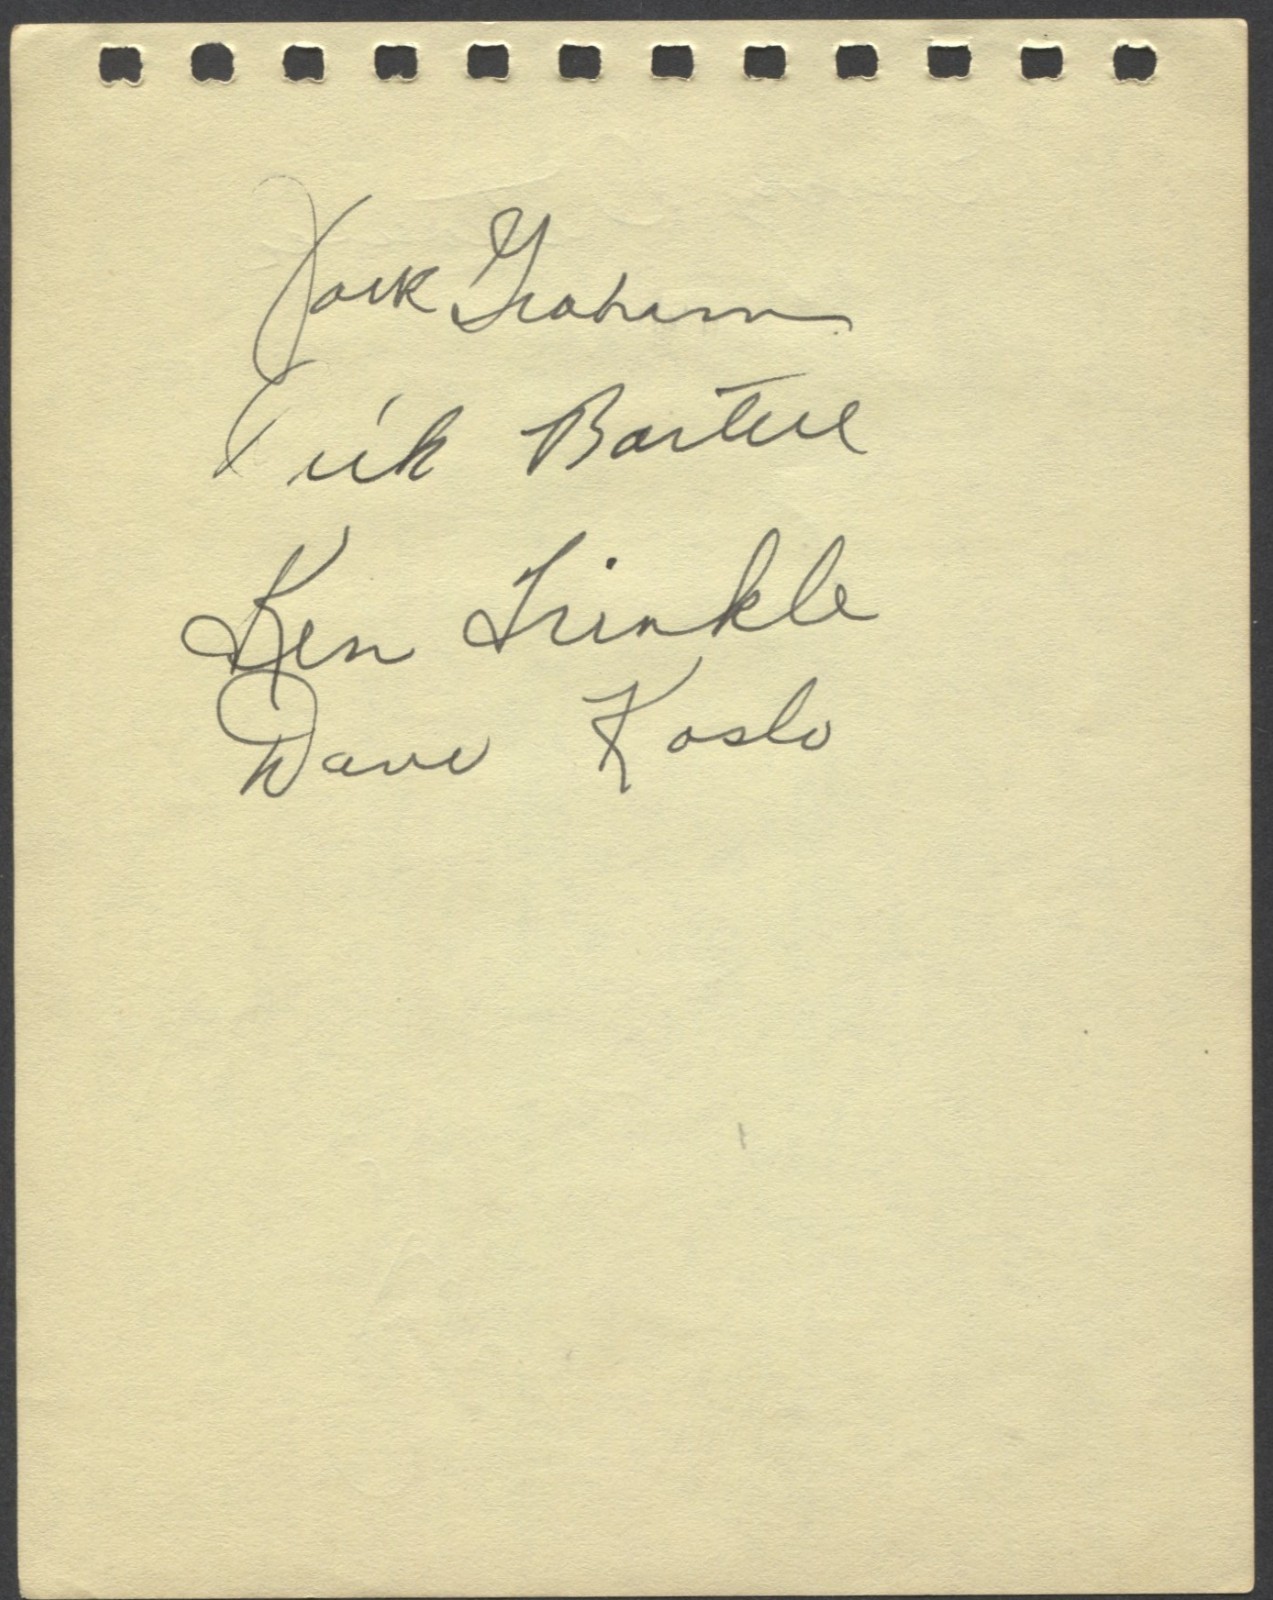 Jack Graham
Dick Bartell
Ken Trinkle
Dave Koslo